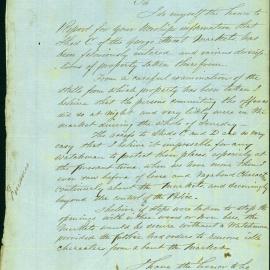 Sir
I do myself the honor to
Report for your Worships information that
Shed C of the George Street Markets has
been feloniously entered and various descrip-
tions of property taken therefrom
From a careful examination of the
stalls from which property has been taken I
believe that the persons committing the offence
did so at night and very likely were in the
market during the whole of
The access to Sheds C and D is so very
easy that I believe it impossible for any
Watchman to protect them, please especially at
the present time when so have been
over before of loose and Vagabond Characters
continually about the Markets and seemingly
beyond the control of the Police
I believe if steps was taken to stop the
openings with either wood or iron bars, the
Markets would be secure without a Watchman
provided the police have orders to remove idle
characters from about the Markets
I have the honor to be